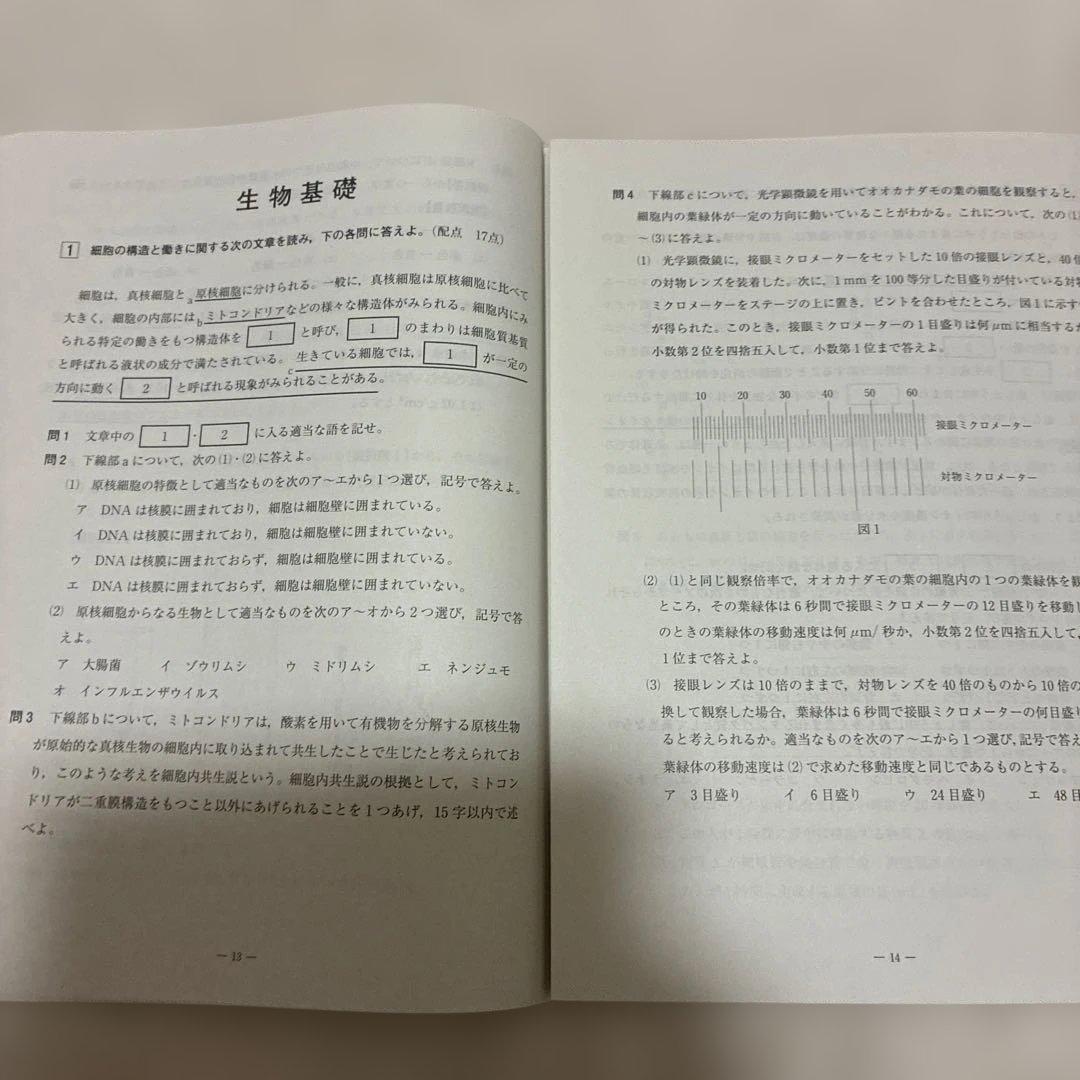 生物基礎
1 細胞の構造と働きに関する次の文章を読み，下の各問に答えよ。(配点 17点)
細胞は，真核細胞と a原核細胞に分けられる。一般に，真核細胞は原核細胞に比べて
大きく，細胞の内部には bミトコンドリアなどの様々な構造体がみられる。細胞内にみ
られる特定の働きをもつ構造体を 1 と呼び， 1 のまわりは細胞質基質
と呼ばれる液状の成分で満たされている。 c生きている細胞では， 1 が一定の
方向に動く 2 と呼ばれる現象がみられることがある。
問1 文章中の 1 ・ 2 に入る適当な語を記せ。
問2 下線部aについて，次の(1)・(2)に答えよ。
(1) 原核細胞の特徴として適当なものを次のア～エから1つ選び，記号で答えよ。
ア DNAは核膜に囲まれており，細胞は細胞壁に囲まれている。
イ DNAは核膜に囲まれており，細胞は細胞壁に囲まれていない。
ウ DNAは核膜に囲まれておらず，細胞は細胞壁に囲まれている。
エ DNAは核膜に囲まれておらず，細胞は細胞壁に囲まれていない。
(2) 原核細胞からなる生物として適当なものを次のア～オから2つ選び，記号で答
えよ。
ア 大腸菌 イ ゾウリムシ ウ ミドリムシ エ ネンジュモ
オ インフルエンザウイルス
問3 下線部bについて，ミトコンドリアは，酸素を用いて有機物を分解する原核生物
が原始的な真核生物の細胞内に取り込まれて共生したことで生じたと考えられてお
り，このような考えを細胞内共生説という。細胞内共生説の根拠として，ミトコン
ドリアが二重膜構造をもつこと以外にあげられることを1つあげ，15字以内で述
べよ。
— 13 —
問4 下線部cについて，光学顕微鏡を用いてオオカナダモの葉の細胞を観察すると，
細胞内の葉緑体が一定の方向に動いていることがわかる。これについて，次の(1)
～(3)に答えよ。
(1) 光学顕微鏡に，接眼ミクロメーターをセットした10倍の接眼レンズと，40倍
の対物レンズを装着した。次に，1mmを100等分した目盛りが付いている対物
ミクロメーターをステージの上に置き，ピントを合わせたところ，図1に示す
が得られた。このとき，接眼ミクロメーターの1目盛りは何μmに相当するか
小数第2位を四捨五入して，小数第1位まで答えよ。
10 20 30 40 50 60
接眼ミクロメーター
対物ミクロメーター
図1
(2) (1)と同じ観察倍率で，オオカナダモの葉の細胞内の1つの葉緑体を観
ところ，その葉緑体は6秒間で接眼ミクロメーターの12目盛りを移動し
のときの葉緑体の移動速度は何μm/秒か，小数第2位を四捨五入して，
1位まで答えよ。
(3) 接眼レンズは10倍のままで，対物レンズを40倍のものから10倍の
換して観察した場合，葉緑体は6秒間で接眼ミクロメーターの何目盛り
ると考えられるか。適当なものを次のア～エから1つ選び，記号で答え
葉緑体の移動速度は(2)で求めた移動速度と同じであるものとする。
ア 3目盛り イ 6目盛り ウ 24目盛り エ 48目
— 14 —